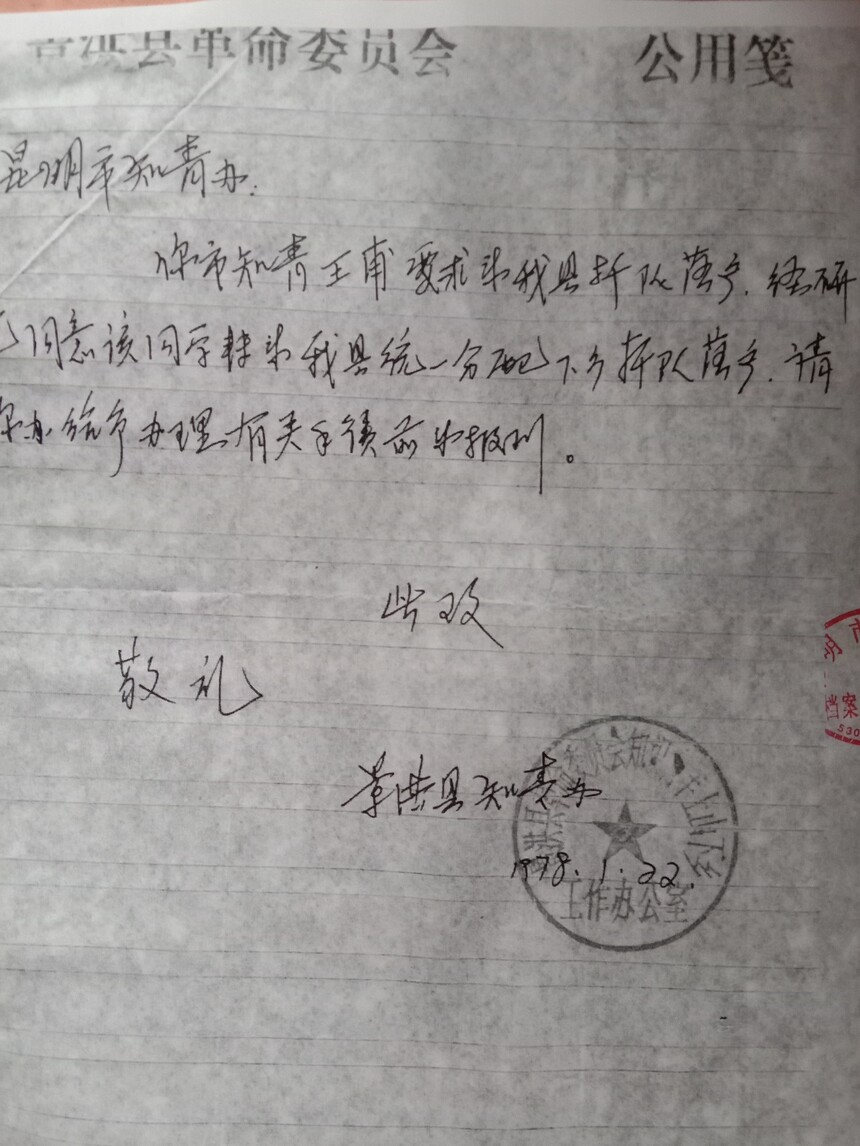 景洪县革命委员会 公用笺
昆明市知青办:
你市知青王甫要求来我县插队落户,经研
已同意该同学转来我县统一分配下乡插队落户,请
你办给予办理有关手续前来报到。
此致
敬礼
景洪县知青办
1978.1.22.
景洪县革命委员会知识青年上山下乡
工作办公室
明市
档案
530